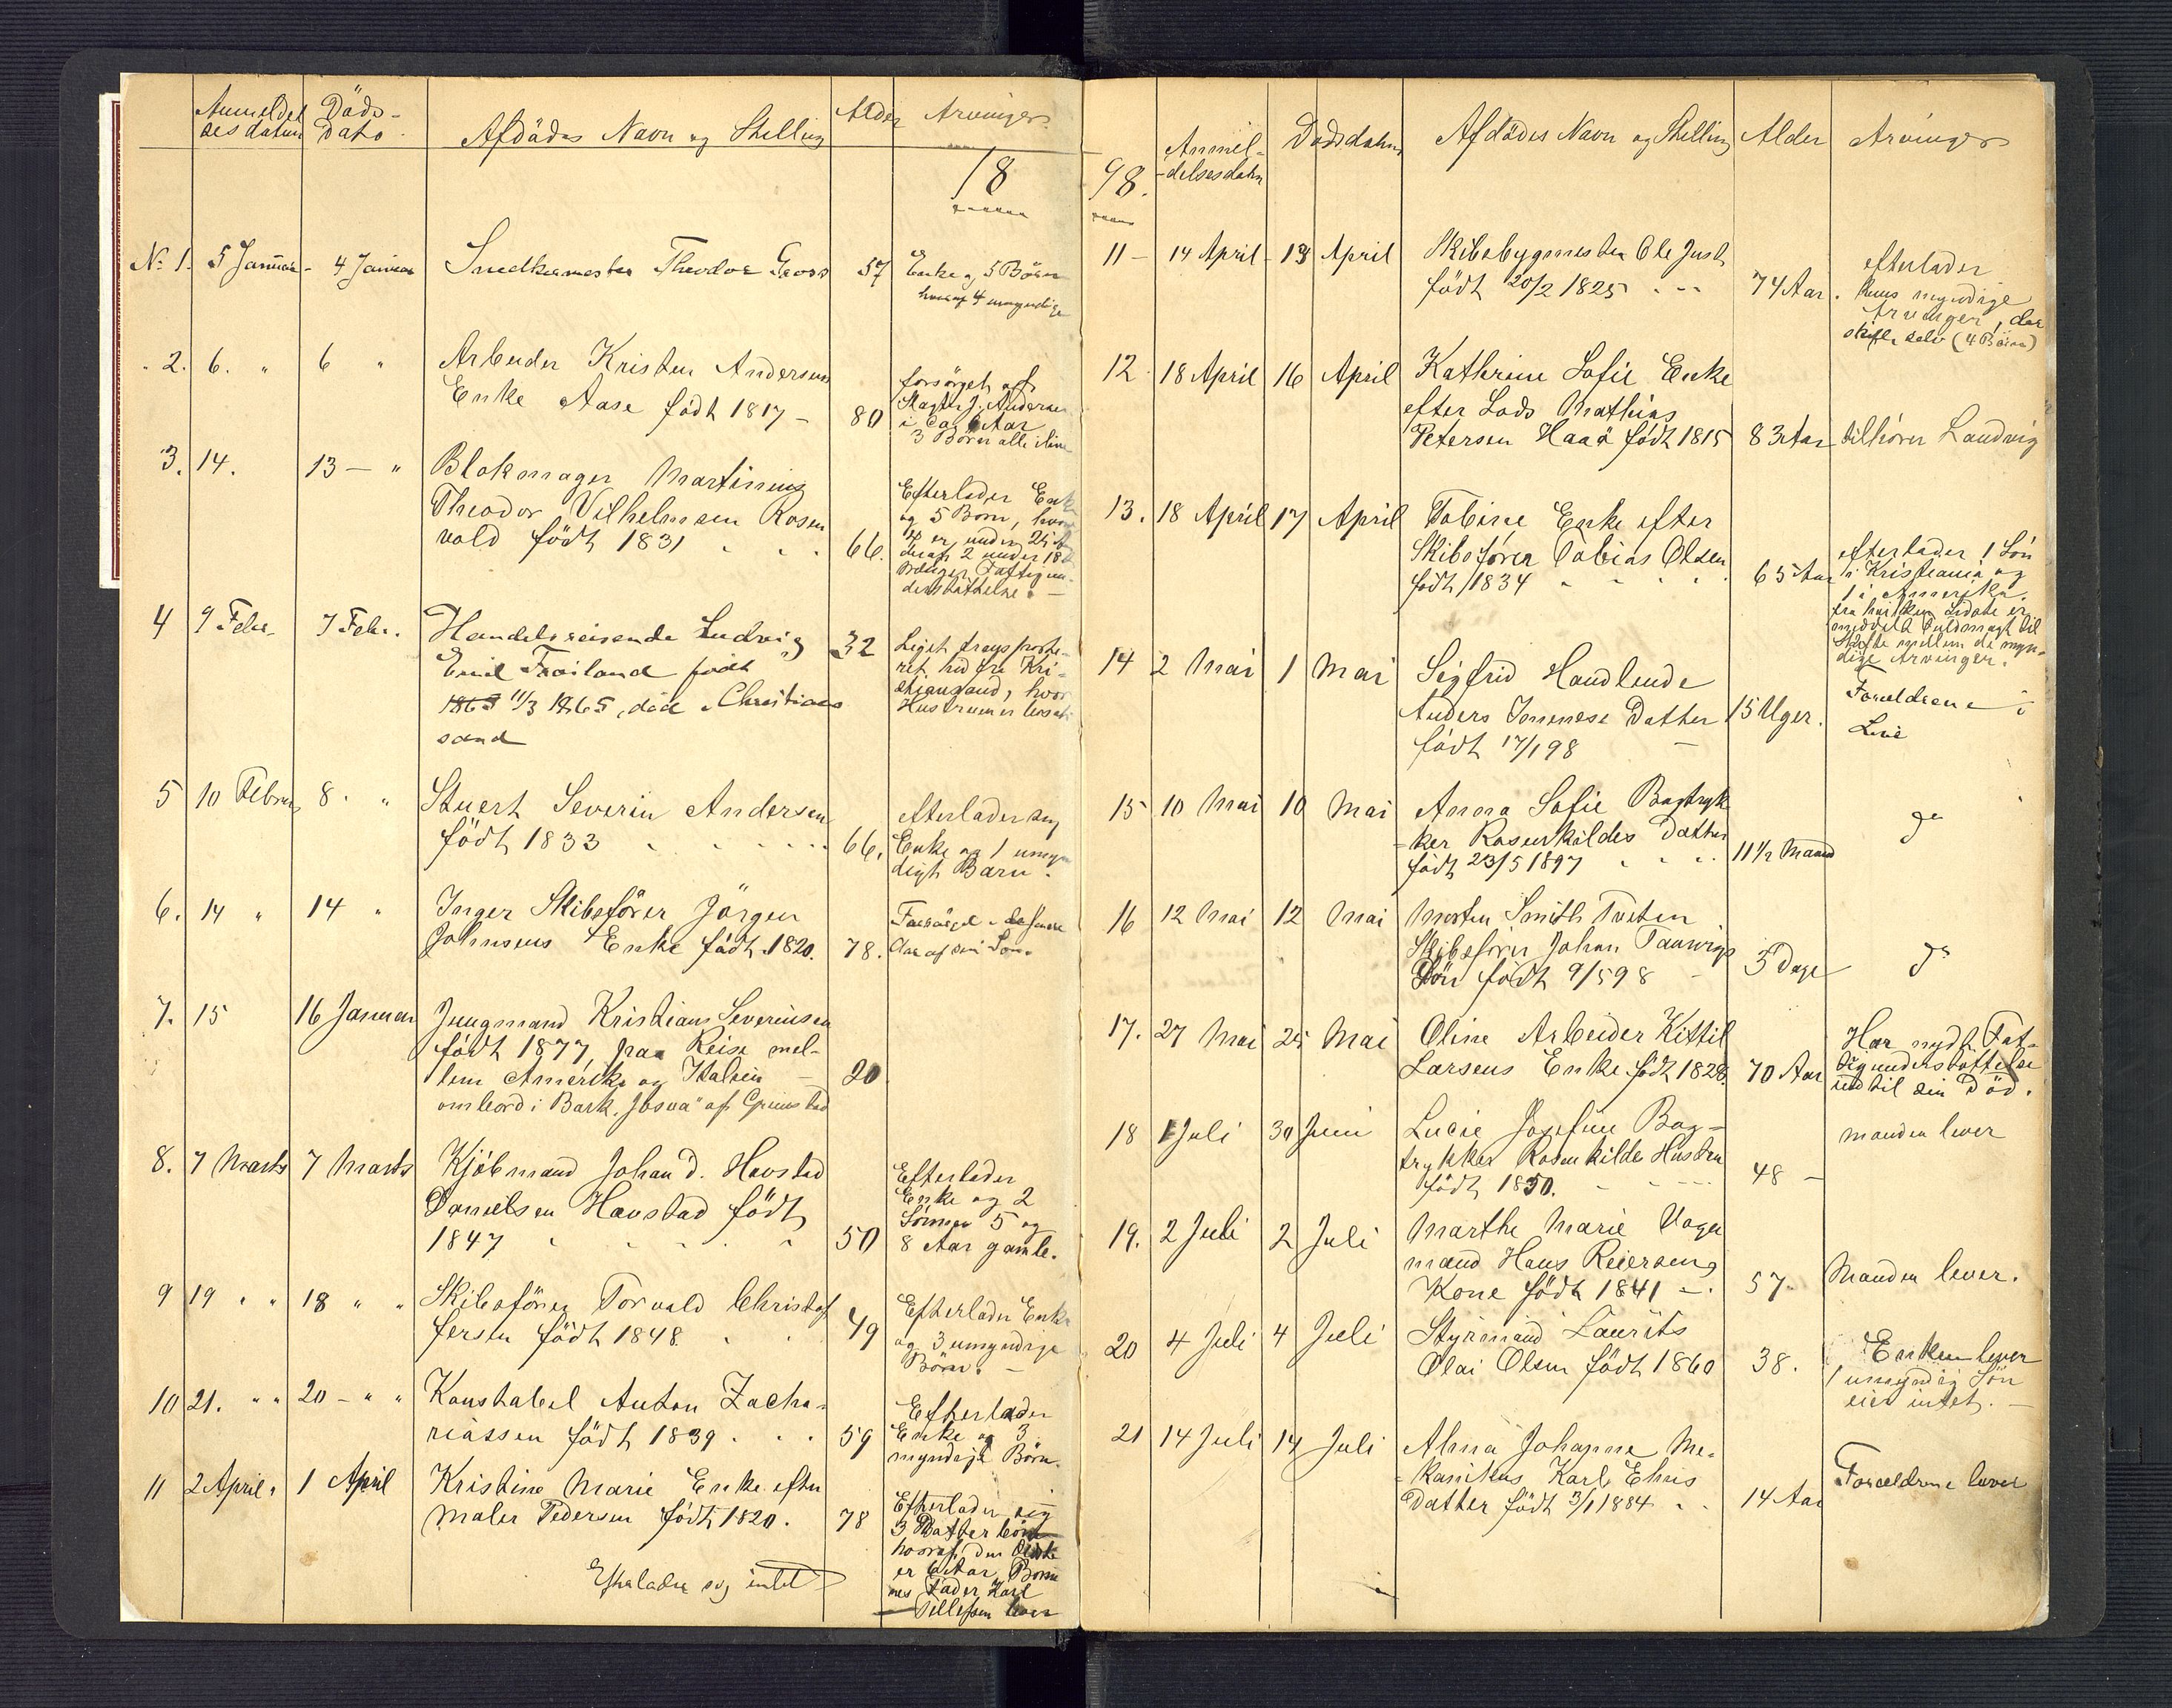 Anmeldel
sesdatum
Döds-
dato
Afdödes Navn og Stilling
Alder
Arvinger
18
No 1. 5 Januar - 4 Januar Snedkermester Theodor Gross 57 Enke og 5 Börn
hvoraf 4 umyndige
2. 6. " 6 " Arbeider Kristen Andersens
Enke Aase födt 1817 - 80
forsörget af
J. Andersen
i ca 6 Aar
3 Börn alle i live
3. 14. 13 - " Blokmager Martinius
Theodor Vilhelmsen Rosen
vold födt 1831 66.
Efterlader Enke
og 5 Born, hvoraf
4 er under 21
deraf 2 under 18
Fattigun-
derstöttelse. -
4 9 Febr. 7 Febr. Handelsreisende Ludvig 32
Emil Froiland födt
1865 11/3 1865, död i Christians
sand
Liget transporte-
ret hid fra Kri-
stiansand, hvor
Hustruen er bosat
5 10 Februar 8. " Stuert Severin Andersen
födt 1833 66.
efterlader sig
Enke og 1 umyn
digt Barn.
6. 14 " 14 " Inger Skibsförer Jörgen
Johnsens Enke födt 1820. 78.
Forsörget i de senere
Aar af sin Sön.
7. 15 16 Januar Jungmand Kristians Severinsen
födt 1877, paa Reise mel-
lem Amerika og Italien - 20
ombord i Bark. "Josva" af Grimstad
8. 7 Marts 7 Marts Kjöbmand Johan D. Havstad
Danielsen Havstad födt
1847 50
Efterlader
Enke og 2
Sönner 5 og
8 Aar gamle.
9 19 " " 18 " " Skibsförer Torvald Christof
fersen födt 1848. 49
Efterlader Enke
og 3 umyndige
Börn. -
10 21. " " 20 - " " Konstabel Anton Zacha-
riassen födt 1839 59
Efterlader
Enke og 3
myndige Börn.
11 2 April. 1 April Kristine Marie Enke efter
Maler Pedersen födt 1820. 78
Efterlader sig intet
Efterlader sig
3 Datterbörn
hvoraf den Ældste
er 6 Aar, Börne
nes Fader Karl
Tellefsen lever
98.
Anmel-
-delsesdatum
Dødsdatum
Afdödes Navn og Stilling
Alder
Arvinger
11 - 14 April - 13 April Skibsbygmester Ole Just
födt 20/2 1825 74 Aar.
efterlader
kuns myndige
Arvinger, der
skifte selv (4 Börn)
12 18 April 16 April Kathrine Sofie Enke
efter Lods Mathias
Petersen Haaö födt 1815 83 Aar tilhörer Landvig
13. 18 April 17 April Tobine Enke efter
Skibsförer Tobias Olsen
födt 1834 65 Aar
efterlader 1 Sön
i Kristiania og
1 i Amerika.
fra hvilken sidste er
meddelt Fuldmagt til
Skifte mellem de myn-
dige Arvinger.
14 2 Mai 1 Mai Sigfrid Handlende
Anders Jonnese Datter 15 Uger.
födt 17/1 98
Forældrene i
Live
15 10 Mai 10 Mai Anna Sofie Bogtryk
-ker Rosenkildes Datter
födt 23/5 1897 11 1/2 Maaned
do
16 12 Mai 12 Mai Morten Smith Tveten
Skibsförer Johan Tauwigs
Sön födt 9/5 98 3 Dage
do
17. 27 Mai 25 Mai Oline Arbeider Kittil
Larsens Enke födt 1828. 70 Aar
Har nydt Fat-
tigunderstöttelse
indtil sin Död.
18 1 Juli 30 Juni Lucie Josefine Bog-
trykker Rosenkildes Hustru
födt 1850. 48 -
manden lever
19. 2 Juli 2 Juli Marthe Marie Vogn
mand Hans Reiersens
Kone födt 1841 -. 57- Manden lever.
20 4 Juli 4 Juli Styrmand Laurits
Olai Olsen födt 1860 38.
Enken lever
1 umyndig Sön
eier intet. -
21 14 Juli 14 Juli Alma Johanne Me-
kanikus Karl Ehris
Datter födt 3/1 1884 14 Aar
Forældrene lever